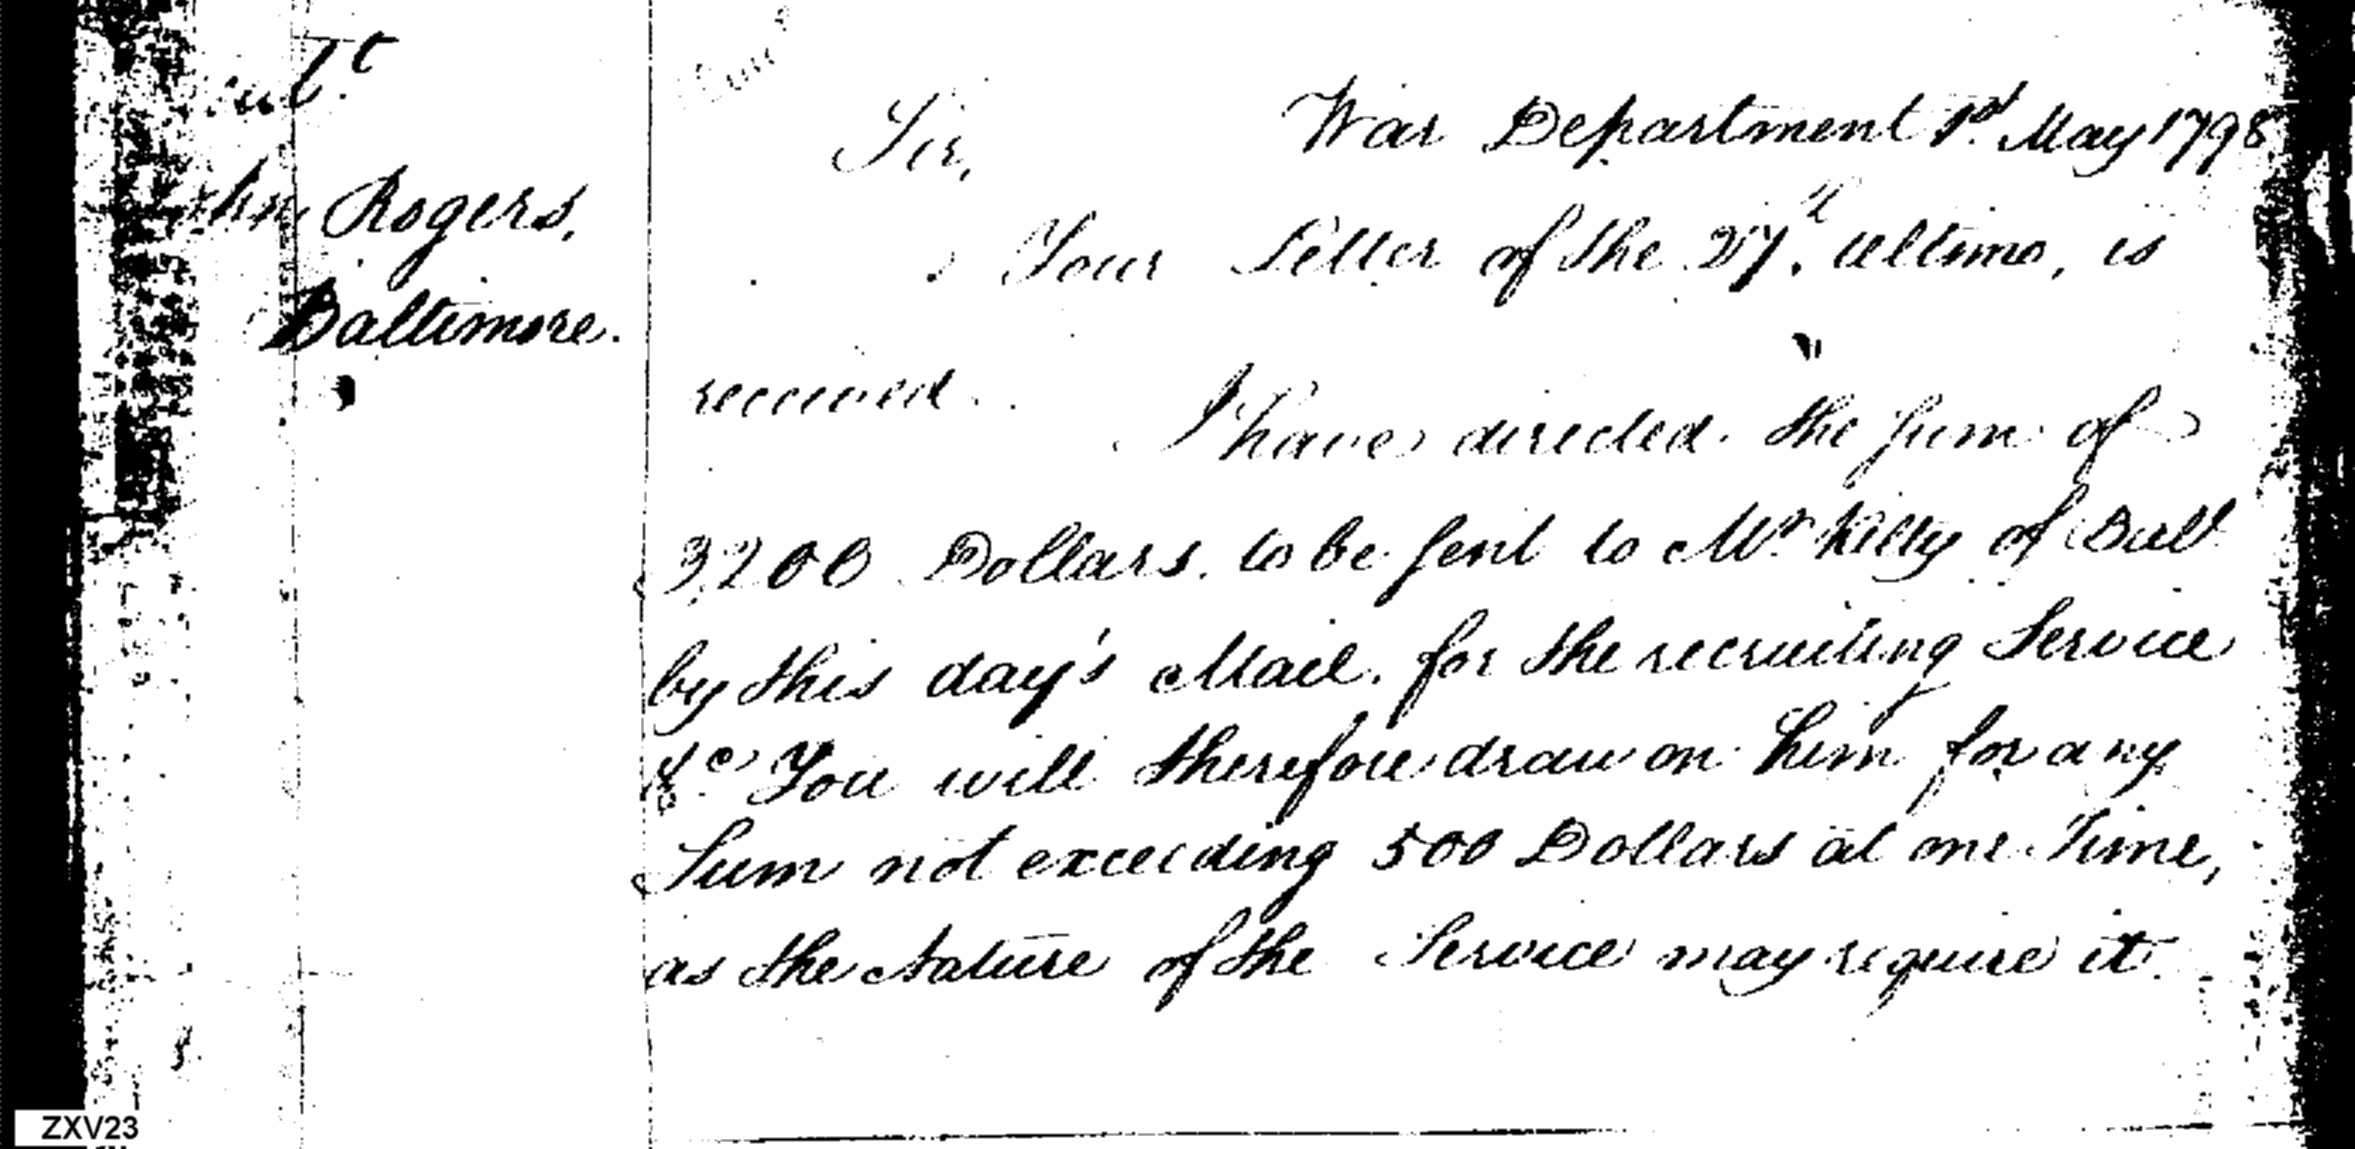 Lieut.
John Rogers,
Baltimore.
War Department 1st. May 1798
Sir,
Your Letter of the 27th. Ultimo, is
received.
I have directed the Sum of
3,200 Dollars, to be sent to Mr. Kilty of Balt.
by this day's Mail, for the recruiting Service
&c. You will therefore draw on him for any
Sum not exceeding 500 Dollars at one Time,
as the Nature of the Service may require it.
ZXV23